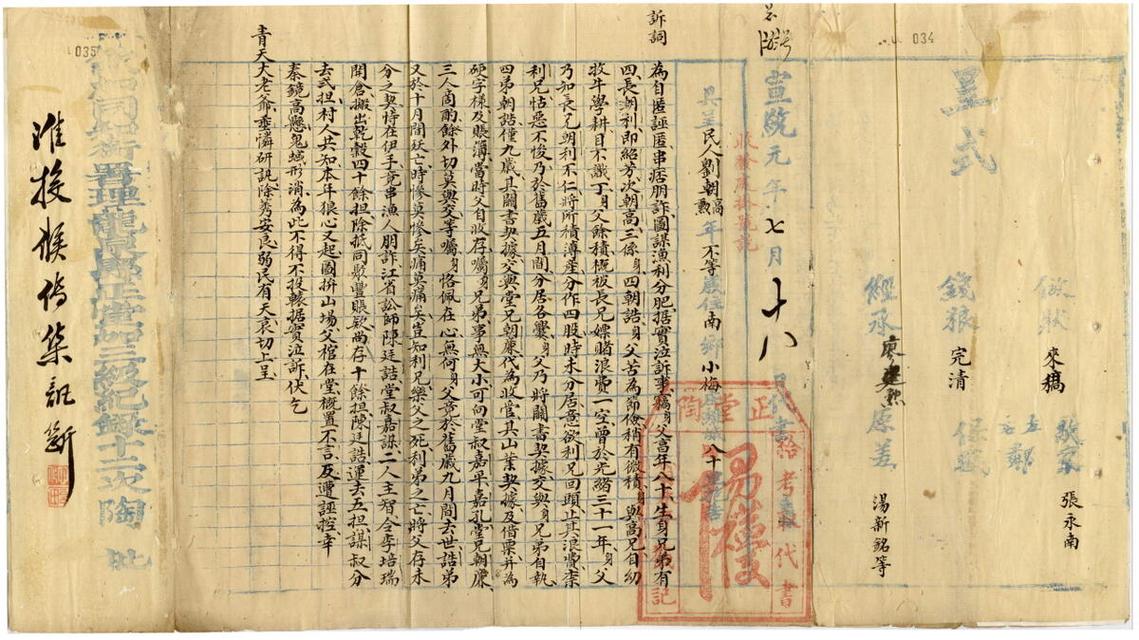 034
呈式
做狀 來稿
歇家 張承南
錢粮 完清
保
左鄰
經承 廖
原差 湯新銘等
宣統元年七月十八日代書
具呈民人劉朝高勲年不等歲住南鄉小梅
正堂陶
給考代書
記
訴詞
為自匿誣匿串痞朋詐圖謀漁利分肥据實泣訴事竊身父高年八十生身兄弟有
四長朝利即紹芳次朝高三係身四朝誥身父苦為節儉稍有微積身與高兄自幼
收牛學耕目不識丁身父餘積概板長兄嫖賭浪費一空曾於光緒三十一年身父
乃知長兄朝利不仁將所積薄產分作四股時未分居意欲利兄回頭止其浪費柰
利兄怙惡不悛乃於舊歲五月間分居各爨身父乃將鬮書契據交與身兄弟自執
四弟朝誥僅九歲其鬮書契據交與堂兄朝廉代為收管其山業契據及借票并為
硬字樣及賬薄當時父自收存囑身兄弟事無大小可向堂叔嘉平嘉孔堂兄朝廉
三人商酌餘外切莫與交等囑身恪佩在心無何身父竟於舊歲九月間去世誥弟
又於十月間殀亡時慘莫慘矣痛莫痛矣豈知利兄樂父之死利弟之亡將父存未
分之契恃在伊手竟串漁人朋詐江省訟師陳廷誥堂叔嘉謀二人主智令李培瑞
開倉搬出乾穀四十餘担除抵同敷豐賬欵尚存十餘担陳廷誥運去五担謀叔分
去弍担村人共知本年狼心又起國拚山塲父棺在堂概置不言反遭誣控幸
秦鏡高懸鬼蜮形消為此不得不投轅据實泣訴伏乞
青天大老爺垂憐研訊除莠安良弱民有天哀切上呈
035
署理龍泉縣正堂加三級紀錄十二次陶 批
准投候傳集訊斷